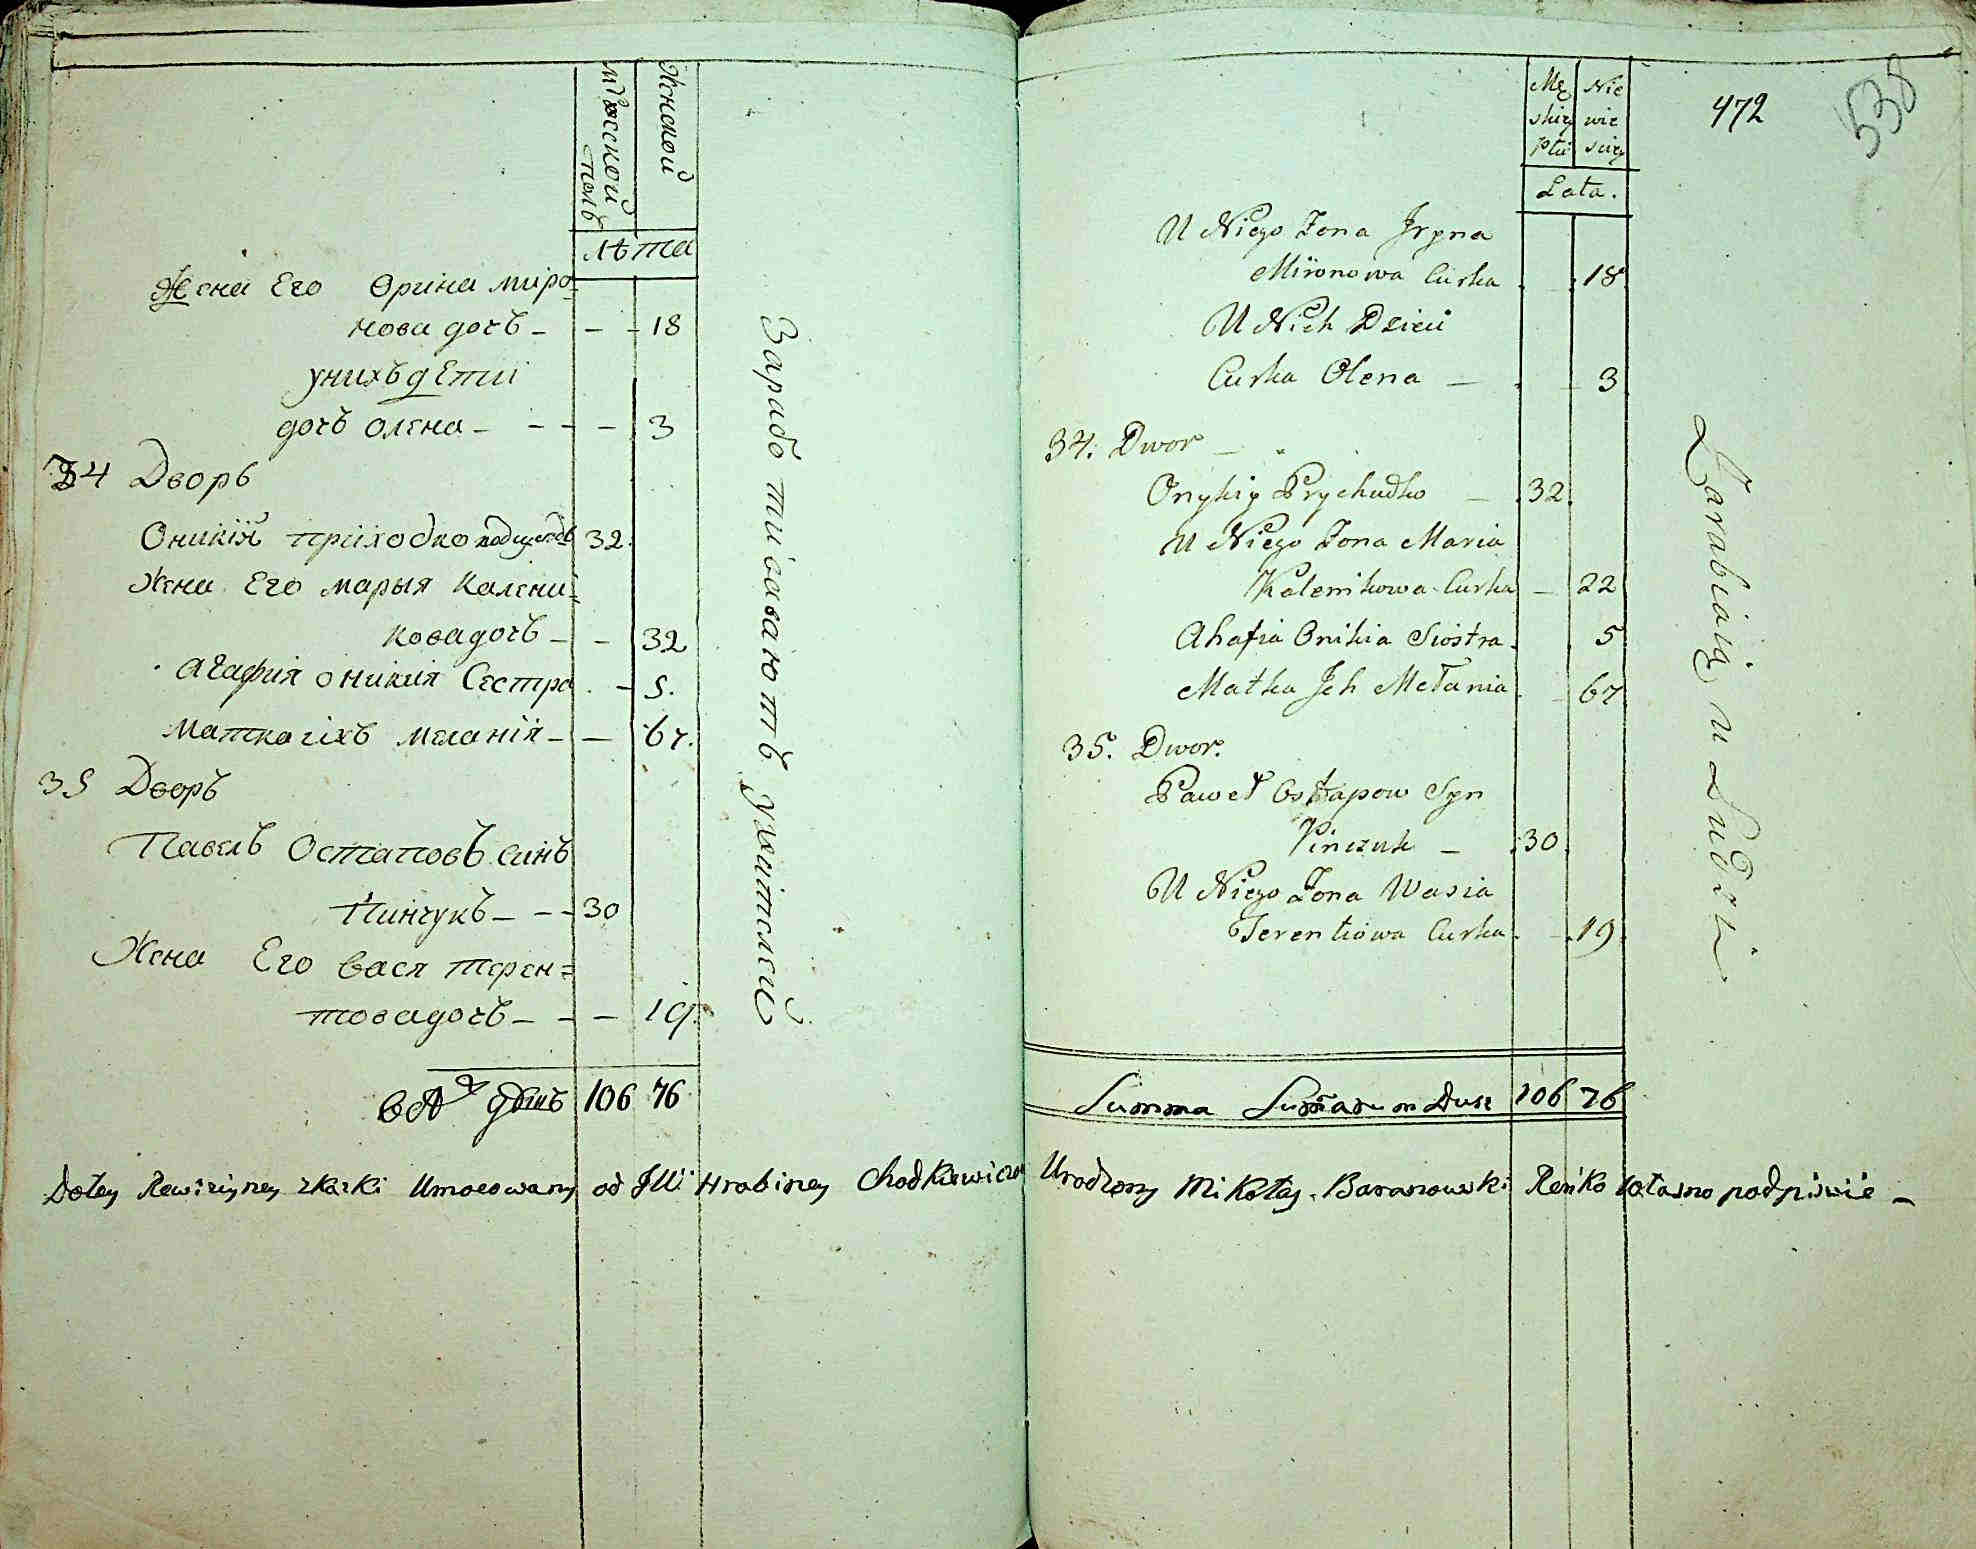 мужской полъ
Женской
лѣта
Жена Его Орина миро-
нова дочъ - - - 18
унихъ дети
дочъ олена - - - - 3
34 Дворъ
Оникій приходко 32.
Жена Его марья калени-
кова дочъ - - 32
агафия оникия Сестра - 5.
матка ихъ мелания - - 67.
35 Дворъ
Павелъ Остаповъ синъ
Пинчукъ - - - 30
Жена Его вася терен=
това дочъ - - - 19.
душъ 106 76
Заработиоваютъ у жителей
Mę
skiey
płci
Nie
wie
sciey
Lata.
472
538
U Niego Zona Jryna
Mironowa Curka - 18
U Nich Dzieci
Curka Olena - - 3
34. Dwor -
Onykiy Prychudko - 32.
U Niego Zona Maria
Kalenikowa Curka - 22
Ahafia Onikia Siostra. 5
Matka Jch Mełania 67
35. Dwor.
Paweł Ostapow Syn
Pinczuk - 30
U Niego Zona Wasia
Terentiowa Curka. - 19
Summa Dusz 106 76
Zarabiaią u Ludzi
Do tey Rewizyiney skaski Umocowany od JW: Hrabiney Chodkiewiczo Urodzony Mikołay Baranowski Renko własno podpisuie -